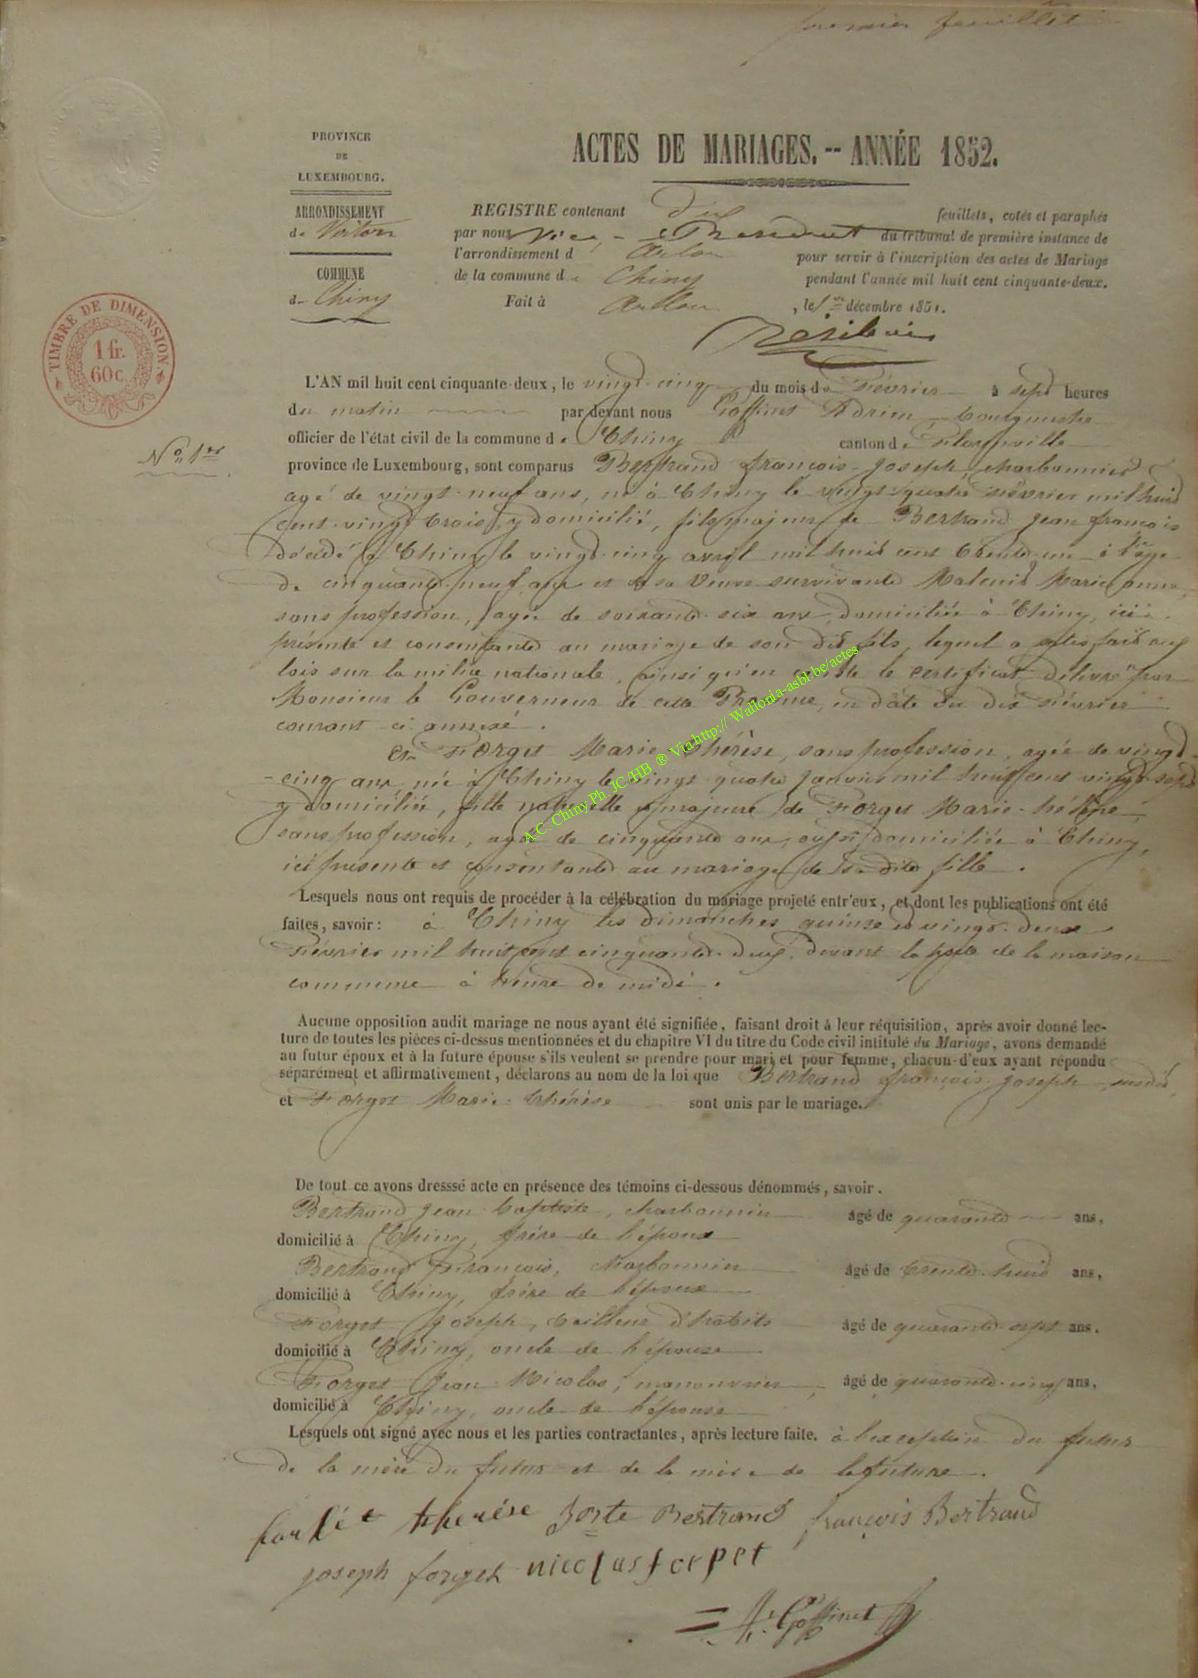 premier feuillet
PROVINCE
DE
LUXEMBOURG.
ARRONDISSEMENT
de Virton
COMMUNE
de Chiny
TIMBRE DE DIMENSION
1 fr.
60 c.
ACTES DE MARIAGES. -- ANNÉE 1852.
REGISTRE contenant dix feuillets, cotés et paraphés
par nous Vice-Président du tribunal de première instance de
l'arrondissement d Arlon pour servir à l'inscription des actes de Mariage
de la commune de Chiny pendant l'année mil huit cent cinquante-deux.
Fait à Arlon , le 1er décembre 1851.
L'AN mil huit cent cinquante-deux, le vingt-cinq du mois de Février à sept heures
du matin par devant nous Goffinet Adrien Bourgmestre
officier de l'état civil de la commune de Chiny canton de Florenville
No 1er
province de Luxembourg, sont comparus Bertrand françois-Joseph, charbonnier
agé de vingt-neuf ans, né à Chiny le vingt-quatre Février mil huit
cent-vingt trois, y domicilié, fils majeur de Bertrand Jean françois
décédé à Chiny le vingt-cinq avril mil huit cent trente-un à l'âge
de cinquante-neuf ans et de sa Veuve survivante Marie anne,
sans profession, agée de soixante-six ans, domiciliée à Chiny, ici
présente et consentante au mariage de son dit fils, lequel a satisfait aux
lois sur la milice nationale, ainsi qu'en conste le certificat délivré par
Monsieur le Gouverneur de cette Province, en dâte du dix Février
courant ci annexé.
Et Forget Marie-Thérèse, sans profession, agée de vingt-
cinq ans, née à Chiny le vingt-quatre janvier mil huit cent vingt-sept
y domiciliée, fille naturelle et majeure de Forget Marie-hélène,
sans profession, agée de cinquante ans, aussi domiciliée à Chiny,
ici présente et consentante au mariage de sa dite fille.
A.C. Chiny Ph JC/HB ® Via http:// Wallonia-asbl.be/actes
Lesquels nous ont requis de procéder à la célébration du mariage projeté entr'eux, et dont les publications ont été
faites, savoir : à Chiny les dimanches quinze et vingt-deux
Février mil huit cent cinquante-deux, devant la porte de la maison
commune à heure de midi.
Aucune opposition audit mariage ne nous ayant été signifiée, faisant droit à leur réquisition, après avoir donné lec-
ture de toutes les pièces ci-dessus mentionnées et du chapitre VI du titre du Code civil intitulé du Mariage, avons demandé
au futur époux et à la future épouse s'ils veulent se prendre pour mari et pour femme, chacun d'eux ayant répondu
séparément et affirmativement, déclarons au nom de la loi que Bertrand françois-joseph susdit
et Forget Marie-Thérèse sont unis par le mariage.
De tout ce avons dresssé acte en présence des témoins ci-dessous dénommés, savoir.
Bertrand Jean-Baptiste, charbonnier âgé de quarante ans,
domicilié à Chiny, frère de l'époux
Bertrand François, charbonnier âgé de trente-huit ans,
domicilié à Chiny, frère de l'époux
Forget Joseph, tailleur d'habits âgé de quarante-sept ans.
domicilié à Chiny, oncle de l'épouse
Forget Jean-Nicolas, manouvrier, âgé de quarante-cinq ans,
domicilié à Chiny, oncle de l'épouse
Lesquels ont signé avec nous et les parties contractantes, après lecture faite. à l'exception du futur
de la mère du futur et de la mère de la future.
therése Bertrand françois Bertrand
joseph forget nicolas forget
Ad. Goffinet